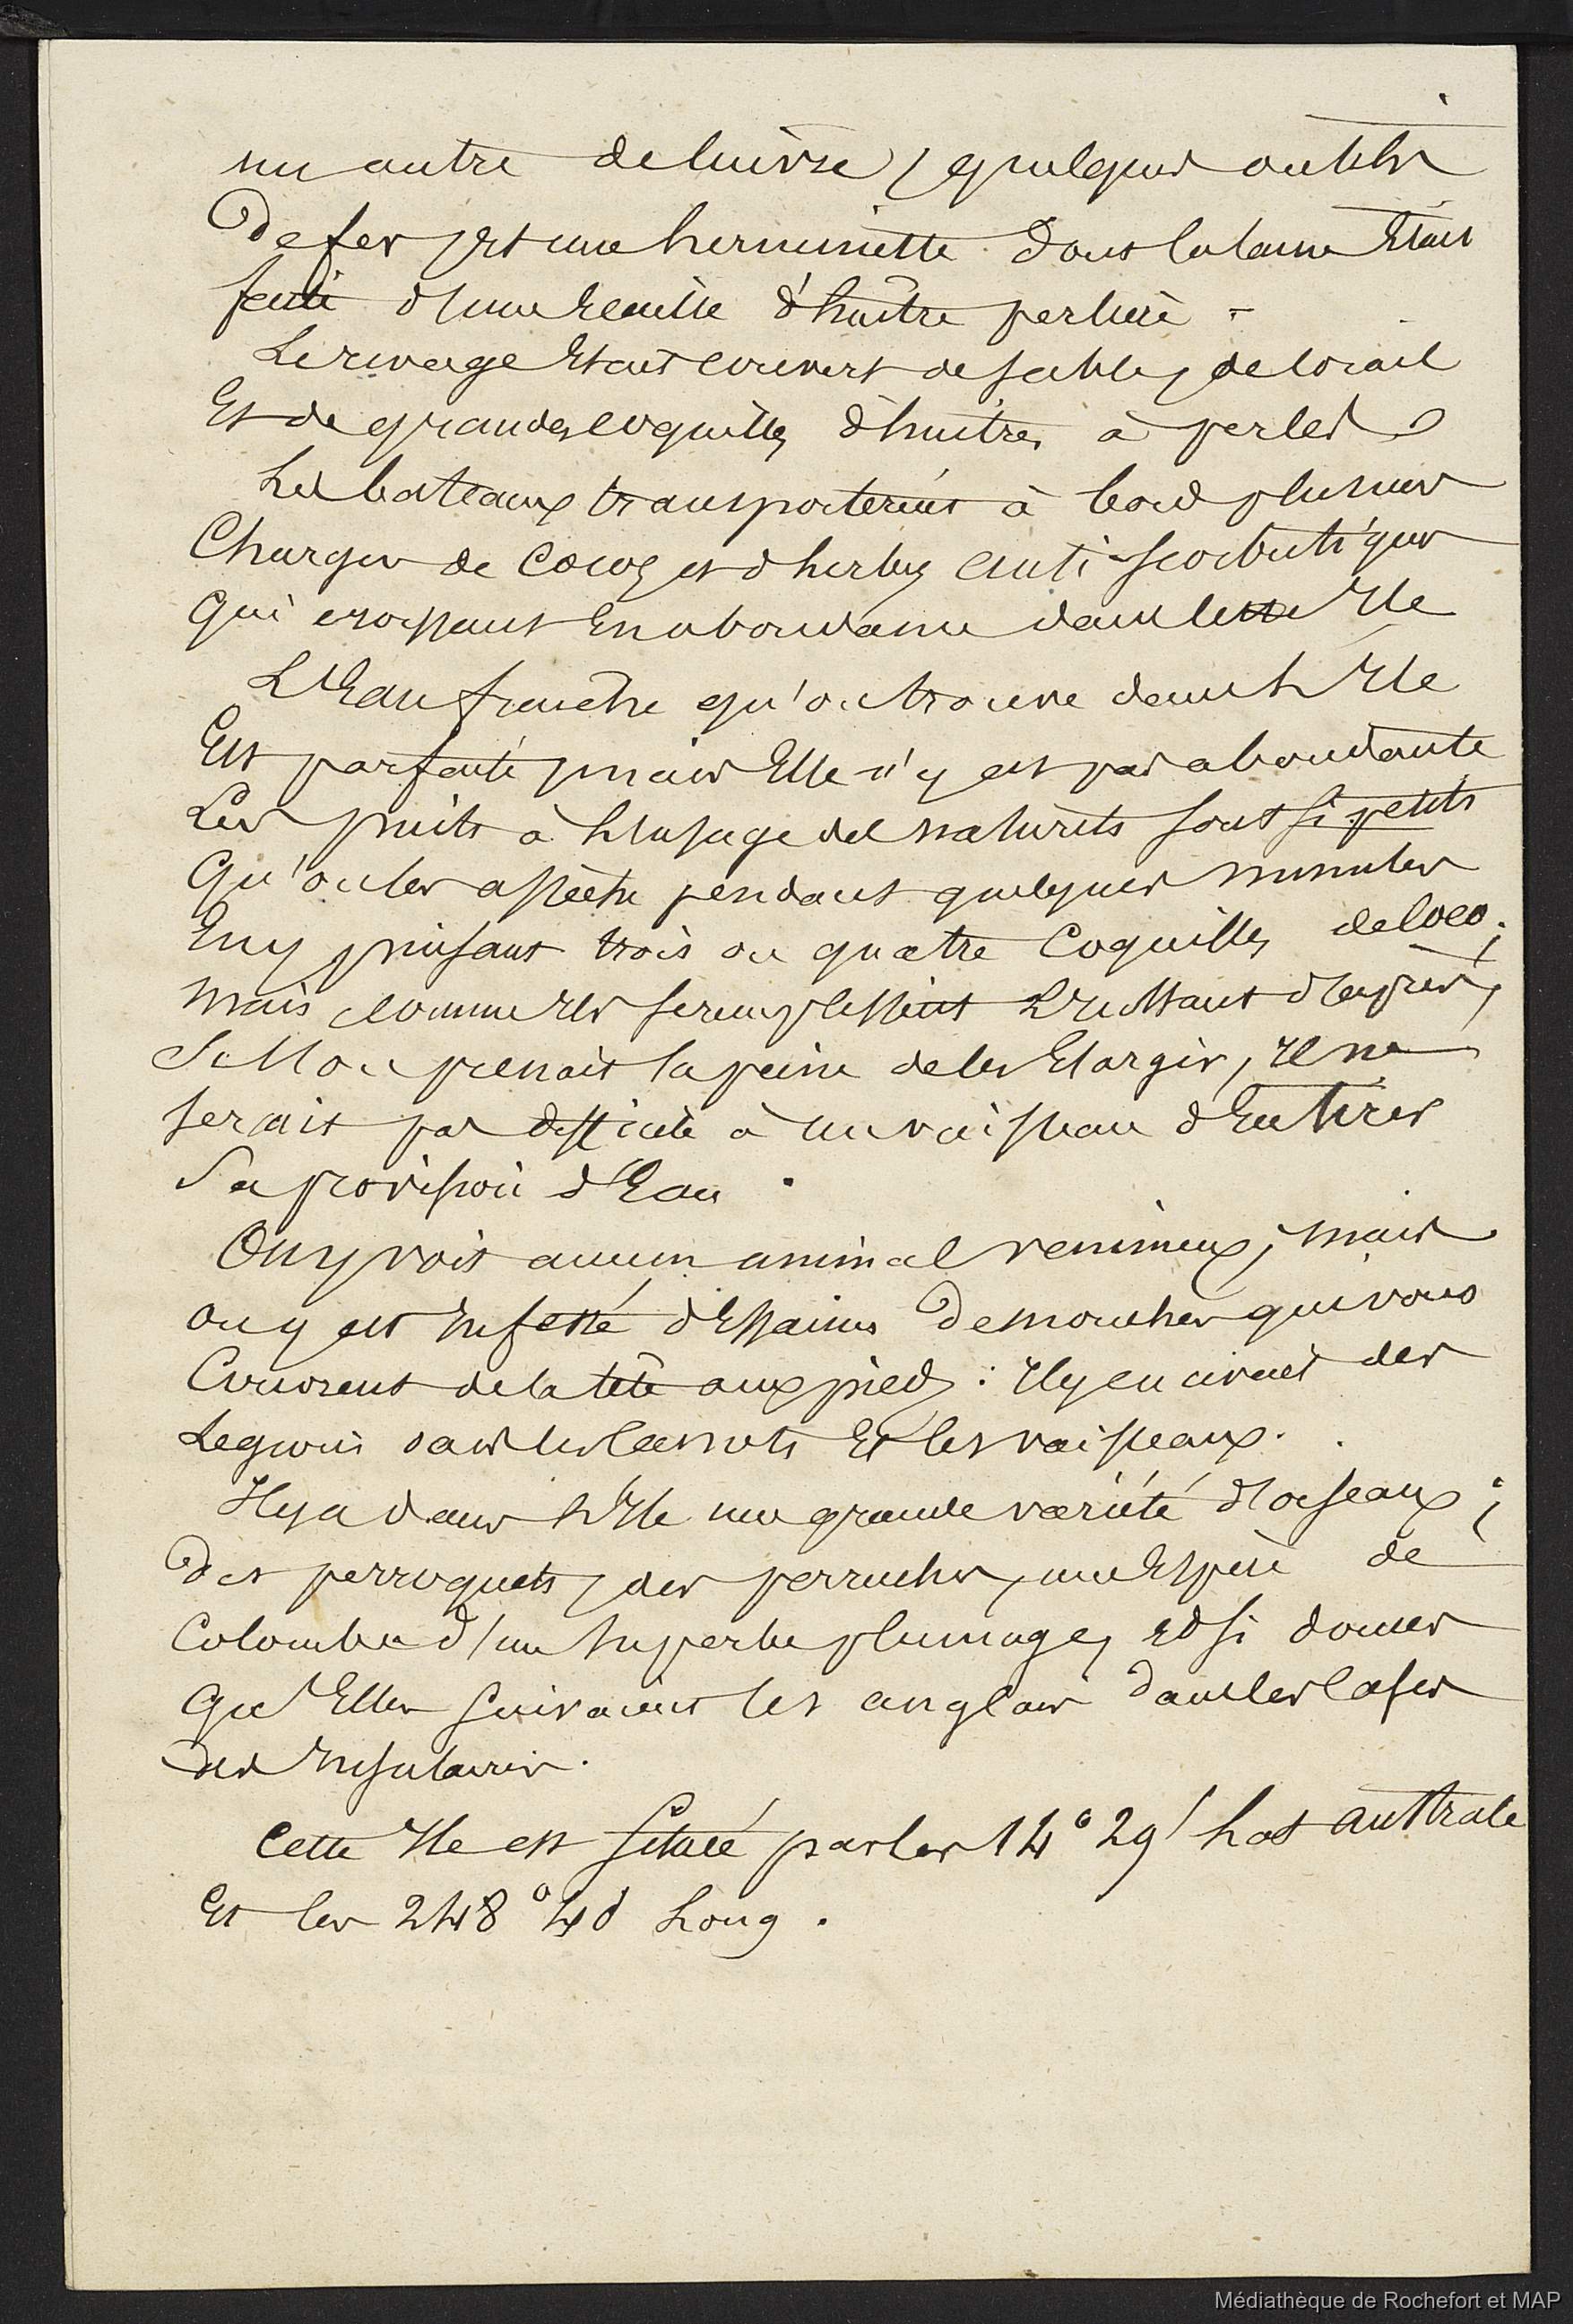 un autre de cuivre, quelques outils
De fer, et une herminette dont la lame était
faite d'une écaille d'huître perlière -
Le rivage était couvert de sable, de corail
Et de grandes coquilles d'huitres à perles
Les bateaux transportèrent à bord plusieurs
Charges de Cocos et d'herbes anti-scorbutiques
Qui croissent en abondance dans cette Ile
L'Eau fraiche qu'on trouve dans l'Ile
Est parfaite, mais Elle n'y est pas abondante
Les puits à l'usage des naturels sont si petits
Qu'on les assèche pendant quelques minutes
En y puisant trois ou quatre Coquilles de Coco;
mais comme ils se remplissent l'instant d'après,
Si l'on prenait la peine de les Elargir, il ne
serait pas difficile à un vaisseau d'en tirer
Sa provision d'Eau.
On y voit aucun animal venimeux; mais
on y est infesté d'Essaims De mouches qui vous
Couvrent de la tête aux pieds: Il y en avait des
Legions dans les canots Et les vaisseaux.
Il y a dans l'Ile une grande variété d'oiseaux;
Des perroquets, des perruches, une Espèce de
Colombe d'un superbe plumage, et si douces
Qu'Elles suivaient les anglais dans les cases
des Insulaires.
Cette Ile est située par les 14° 29' Lat australe
Et les 248° 40 Long.
Médiathèque de Rochefort et MAP